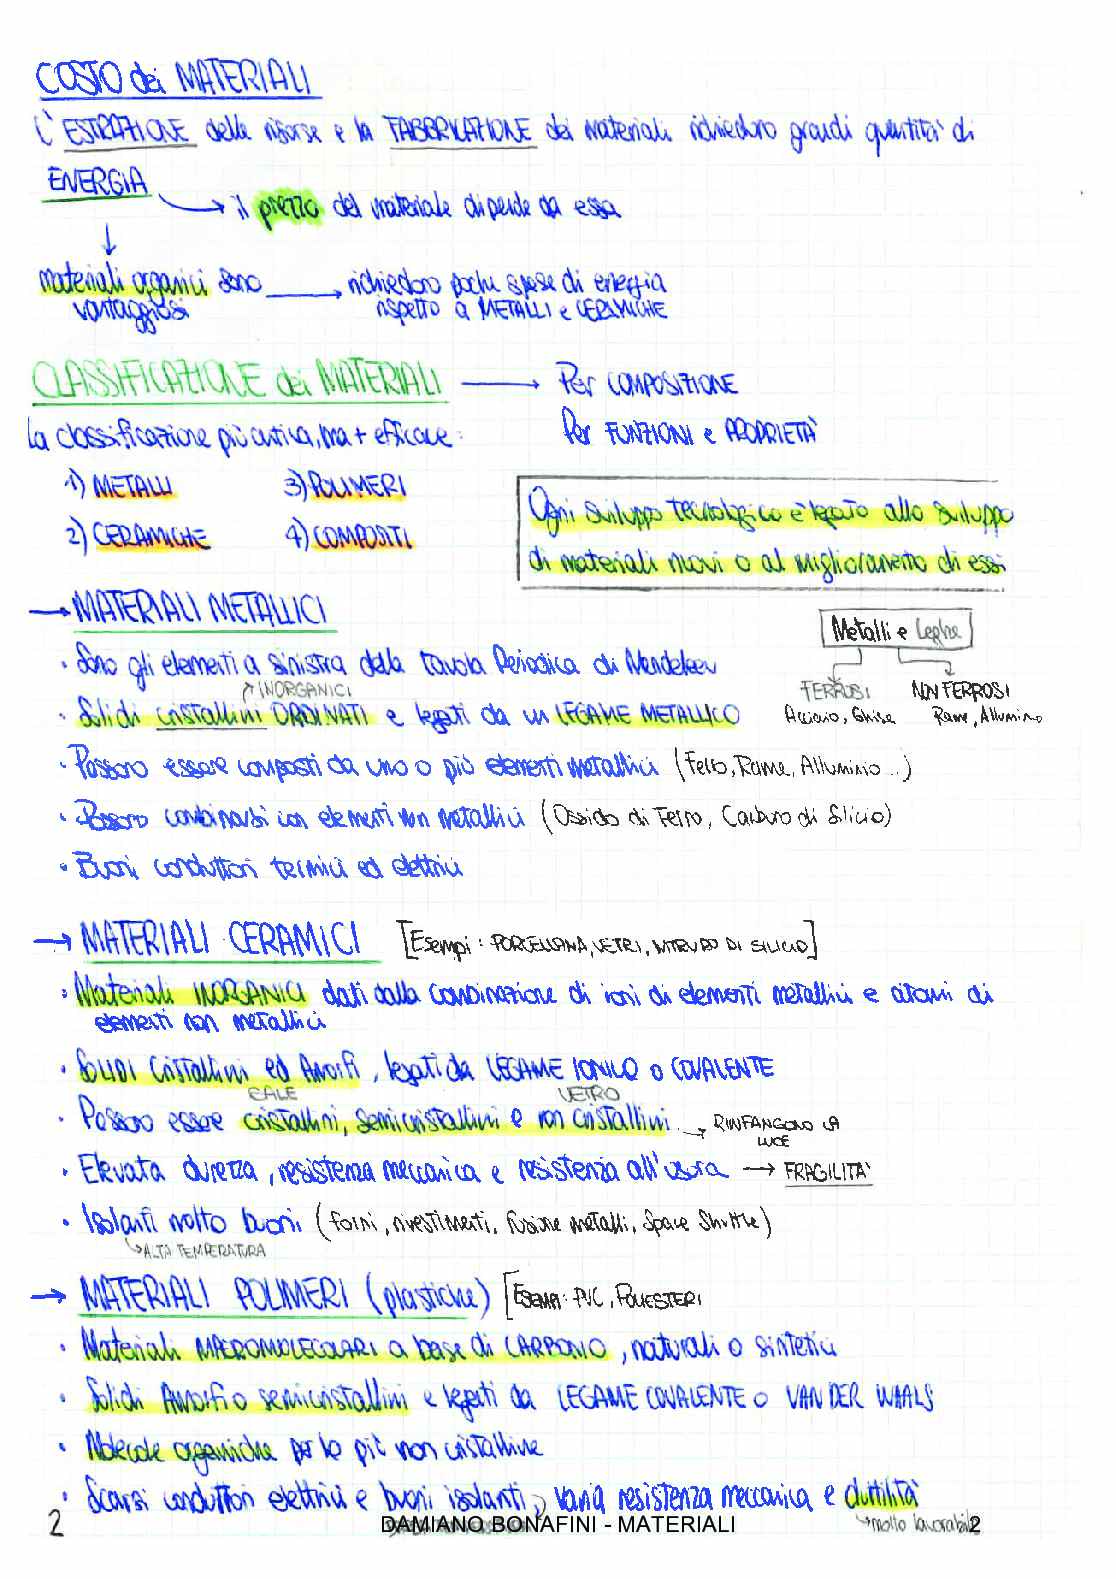 COSTO dei MATERIALI
L'ESTRAZIONE delle risorse e la FABBRICAZIONE dei materiali richiedono grandi quantità di
ENERGIA
→ il prezzo del materiale dipende da essa
↓
materiali organici sono → richiedono poche spese di energia
vantaggiosi rispetto a METALLI e CERAMICHE
CLASSIFICAZIONE dei MATERIALI → Per COMPOSIZIONE
Per FUNZIONI e PROPRIETÀ
La classificazione più antica, ma + efficace:
1) METALLI 3) POLIMERI
2) CERAMICHE 4) COMPOSITI
Ogni sviluppo tecnologico è legato allo sviluppo
di materiali nuovi o al miglioramento di essi
→ MATERIALI METALLICI
Metalli e Leghe
FERROSI NON FERROSI
Acciaio, Ghisa Rame, Allumino
• Sono gli elementi a sinistra della tavola Periodica di Mendeleev
↗ INORGANICI
• Solidi cristallini ORDINATI e legati da un LEGAME METALLICO
• Possono essere composti da uno o più elementi metallici (Ferro, Rame, Alluminio...)
• Possono combinarsi con elementi non metallici (Ossido di Ferro, Carburo di Silicio)
• Buoni conduttori termici ed elettrici
→ MATERIALI CERAMICI [Esempi: PORCELLANA, VETRI, NITRURO DI SILICIO]
• Materiali INORGANICI dati dalla combinazione di ioni di elementi metallici e atomi di
elementi non metallici
• SOLIDI Cristallini ed Amorfi, legati da LEGAME IONICO o COVALENTE
CALE VETRO
• Possono essere cristallini, semicristallini e non cristallini → RINFANGONO LA
LUCE
• Elevata durezza, resistenza meccanica e resistenza all'usura → FRAGILITA'
• Isolanti molto buoni (forni, rivestimenti, fusione metalli, Space Shuttle)
↳ ALTA TEMPERATURA
→ MATERIALI POLIMERI (plastiche) [ESEMPI: PVC, POLIESTERI
• Materiali MACROMOLECOLARI a base di CARBONIO, naturali o sintetici
• Solidi Amorfi o semicristallini e legati da LEGAME COVALENTE o VAN DER WAALS
• Molecole organiche per lo più non cristalline
• Scarsi conduttori elettrici e buoni isolanti, varia resistenza meccanica e duttilità
↳ molto lavorabile
2 DAMIANO BONAFINI - MATERIALI 2